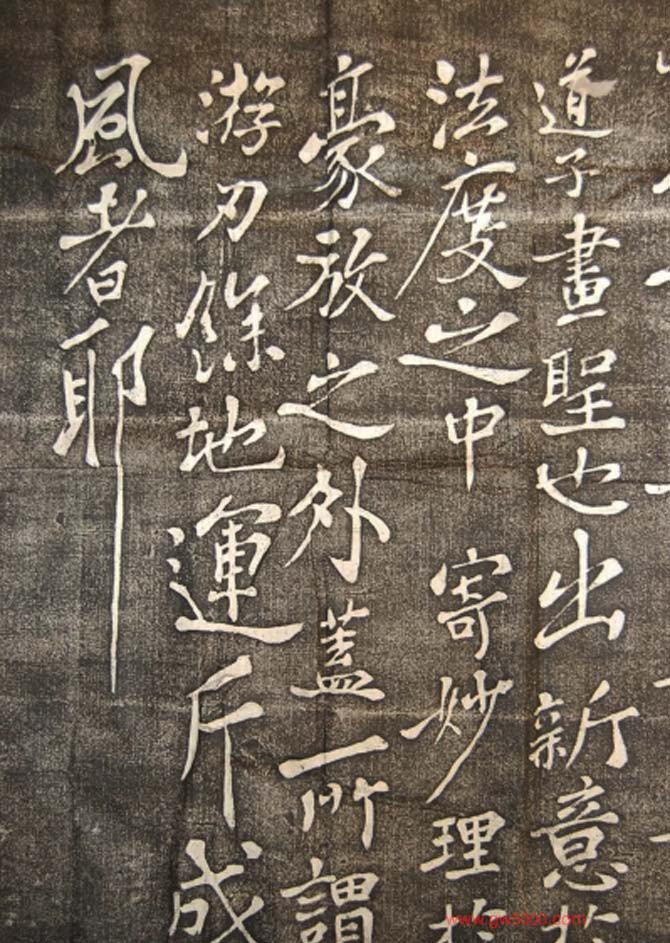 道子畫聖也出新意於
法度之中寄妙理於
豪放之外蓋所謂
游刃餘地運斤成
風者耶